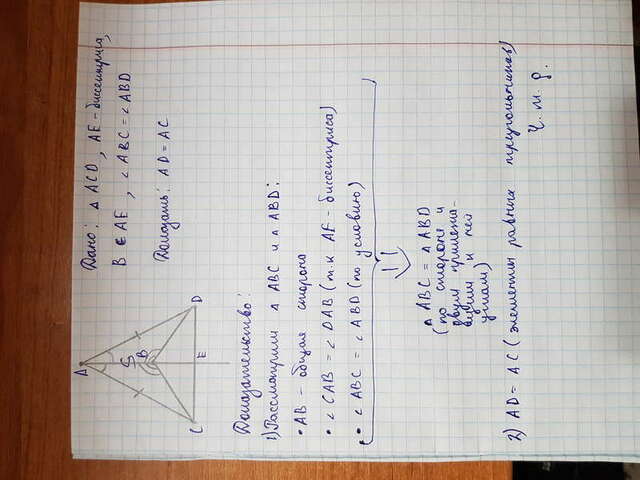 A
B
C
E
D
Дано: △ ACD, AE - биссектриса,
B ∈ AE, ∠ ABC = ∠ ABD
Доказать: AD = AC
Доказательство:
1) Рассмотрим △ ABC и △ ABD:
• AB - общая сторона
• ∠ CAB = ∠ DAB (т.к AE - биссектриса)
• ∠ ABC = ∠ ABD (по условию)
△ ABC = △ ABD
(по стороне и
двум прилежа-
щим к ней
углам)
2) AD = AC (элементы равных треугольников)
Ч. т. д.